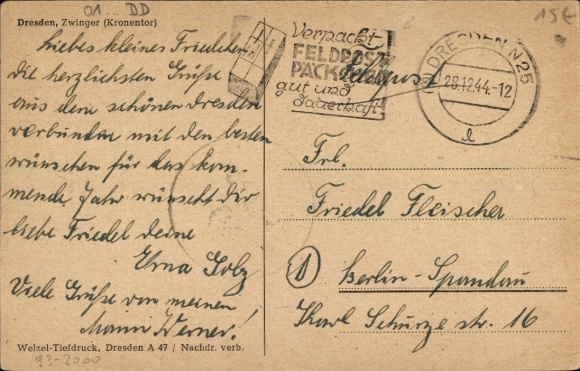 01 DD
15€
Dresden, Zwinger (Kronentor)
Liebes kleines Friedchen
die herzlichsten Grüße
aus dem schönen Dresden
verbunden mit den besten
wünschen für das kom-
mende Jahr wünscht dir
liebe Friedel deine
Erna Golz
Viele Grüße von meinen
Mann Werner!
Welzel-Tiefdruck, Dresden A 47 / Nachdr. verb.
93-2000
Verpackt
FELDPOST
PÄCKCHEN
gut und
dauerhaft
DRESDEN N 25
28.12.44-12
l
Frl.
Friedel Fleischer
1 Berlin-Spandau
Karl Schurze str. 16